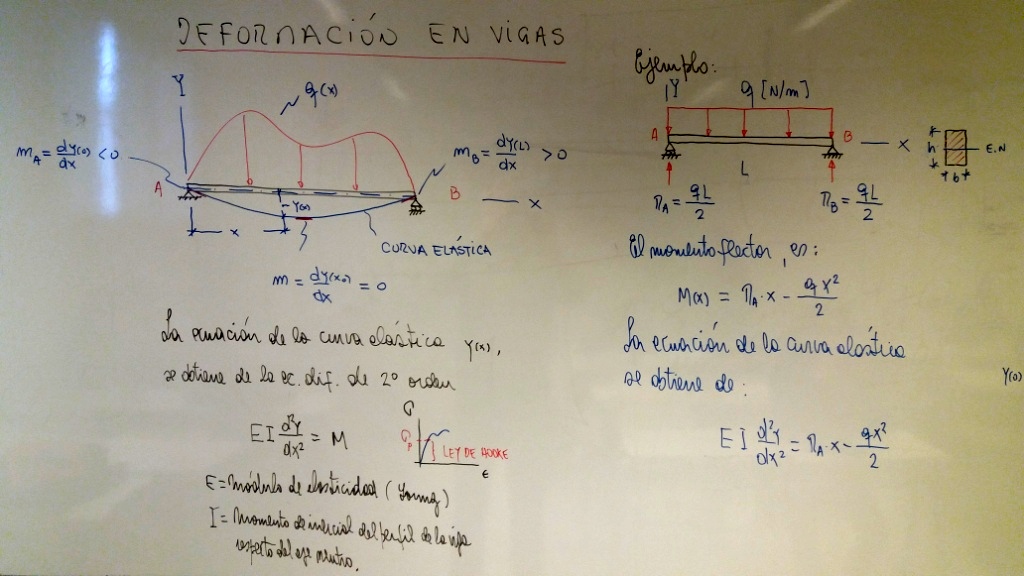 DEFORMACIÓN EN VIGAS
Y
q(x)
m_A = dy(0)/dx < 0
m_B = dy(L)/dx > 0
A
B
x
-Y(x)
x
CURVA ELÁSTICA
m = dy(x₀)/dx = 0
La ecuación de la curva elástica y(x),
se obtiene de la ec. dif. de 2º orden
EI d²y/dx² = M
σ
σp
LEY DE HOOKE
ε
E = Módulo de elasticidad (Young)
I = Momento de inercial del perfil de la viga
respecto del eje neutro.
Ejemplo:
Y
q [N/m]
A
B
x
h
E.N
b
L
R_A = qL/2
R_B = qL/2
El momento flector, es:
M(x) = R_A · x - qx²/2
La ecuación de la curva elástica
se obtiene de:
Y(0)
EI d²y/dx² = R_A · x - qx²/2